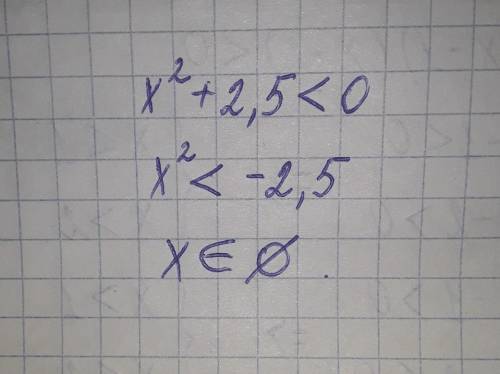 x² + 2,5 < 0
x² < -2,5
x ∈ ∅.